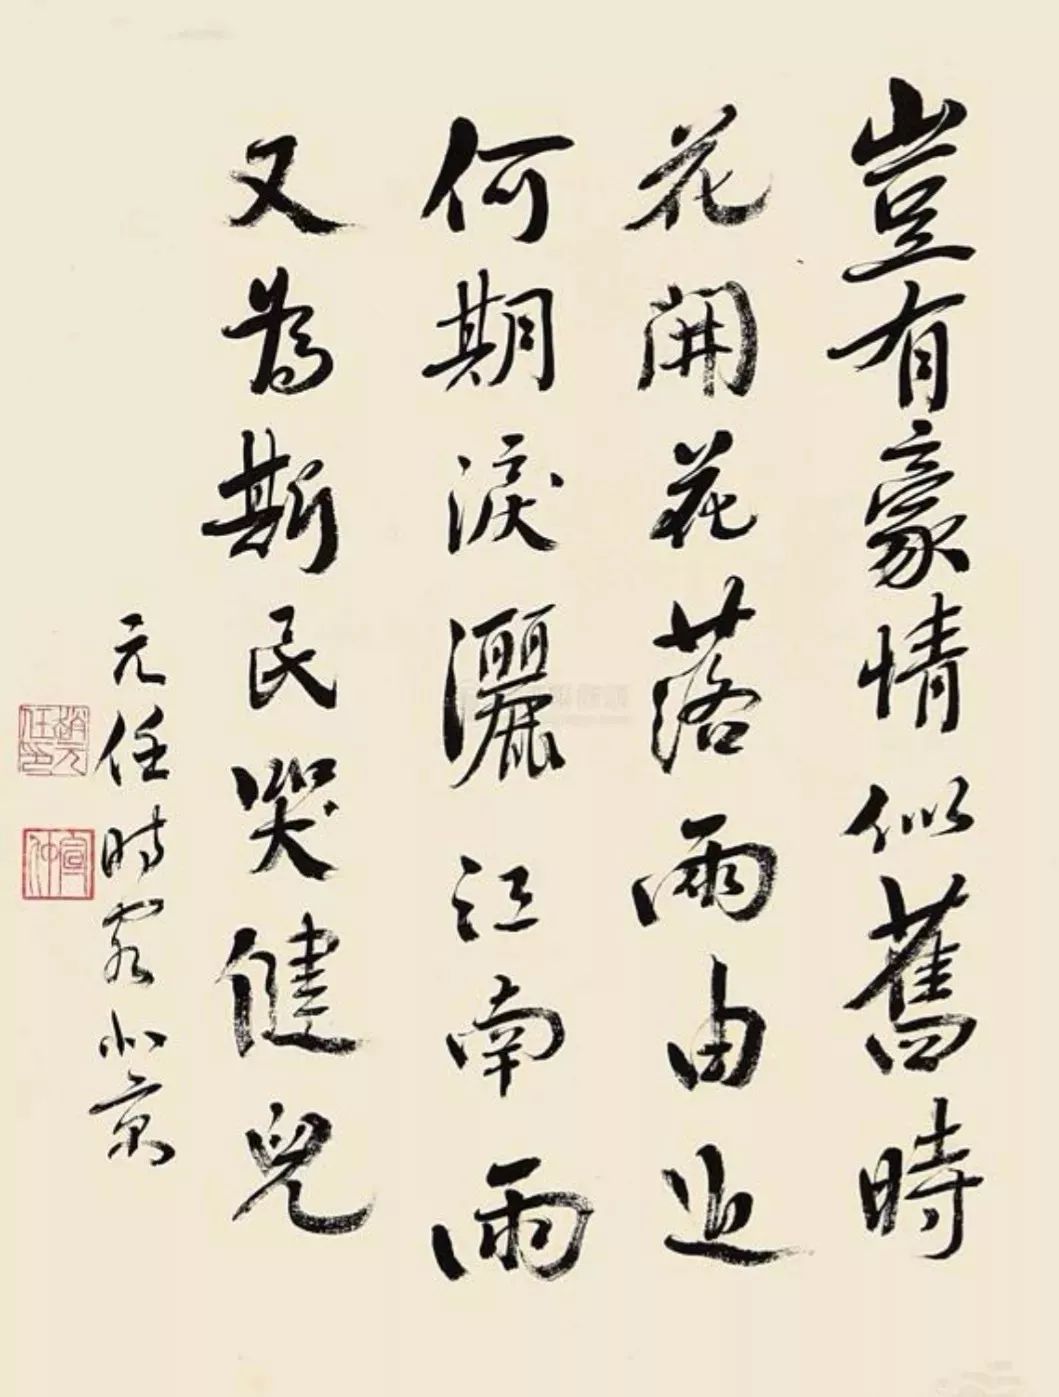 豈有豪情似舊時
花開花落兩由之
何期淚灑江南雨
又為斯民哭健兒
元任時客北京
趙元任印
宣仲